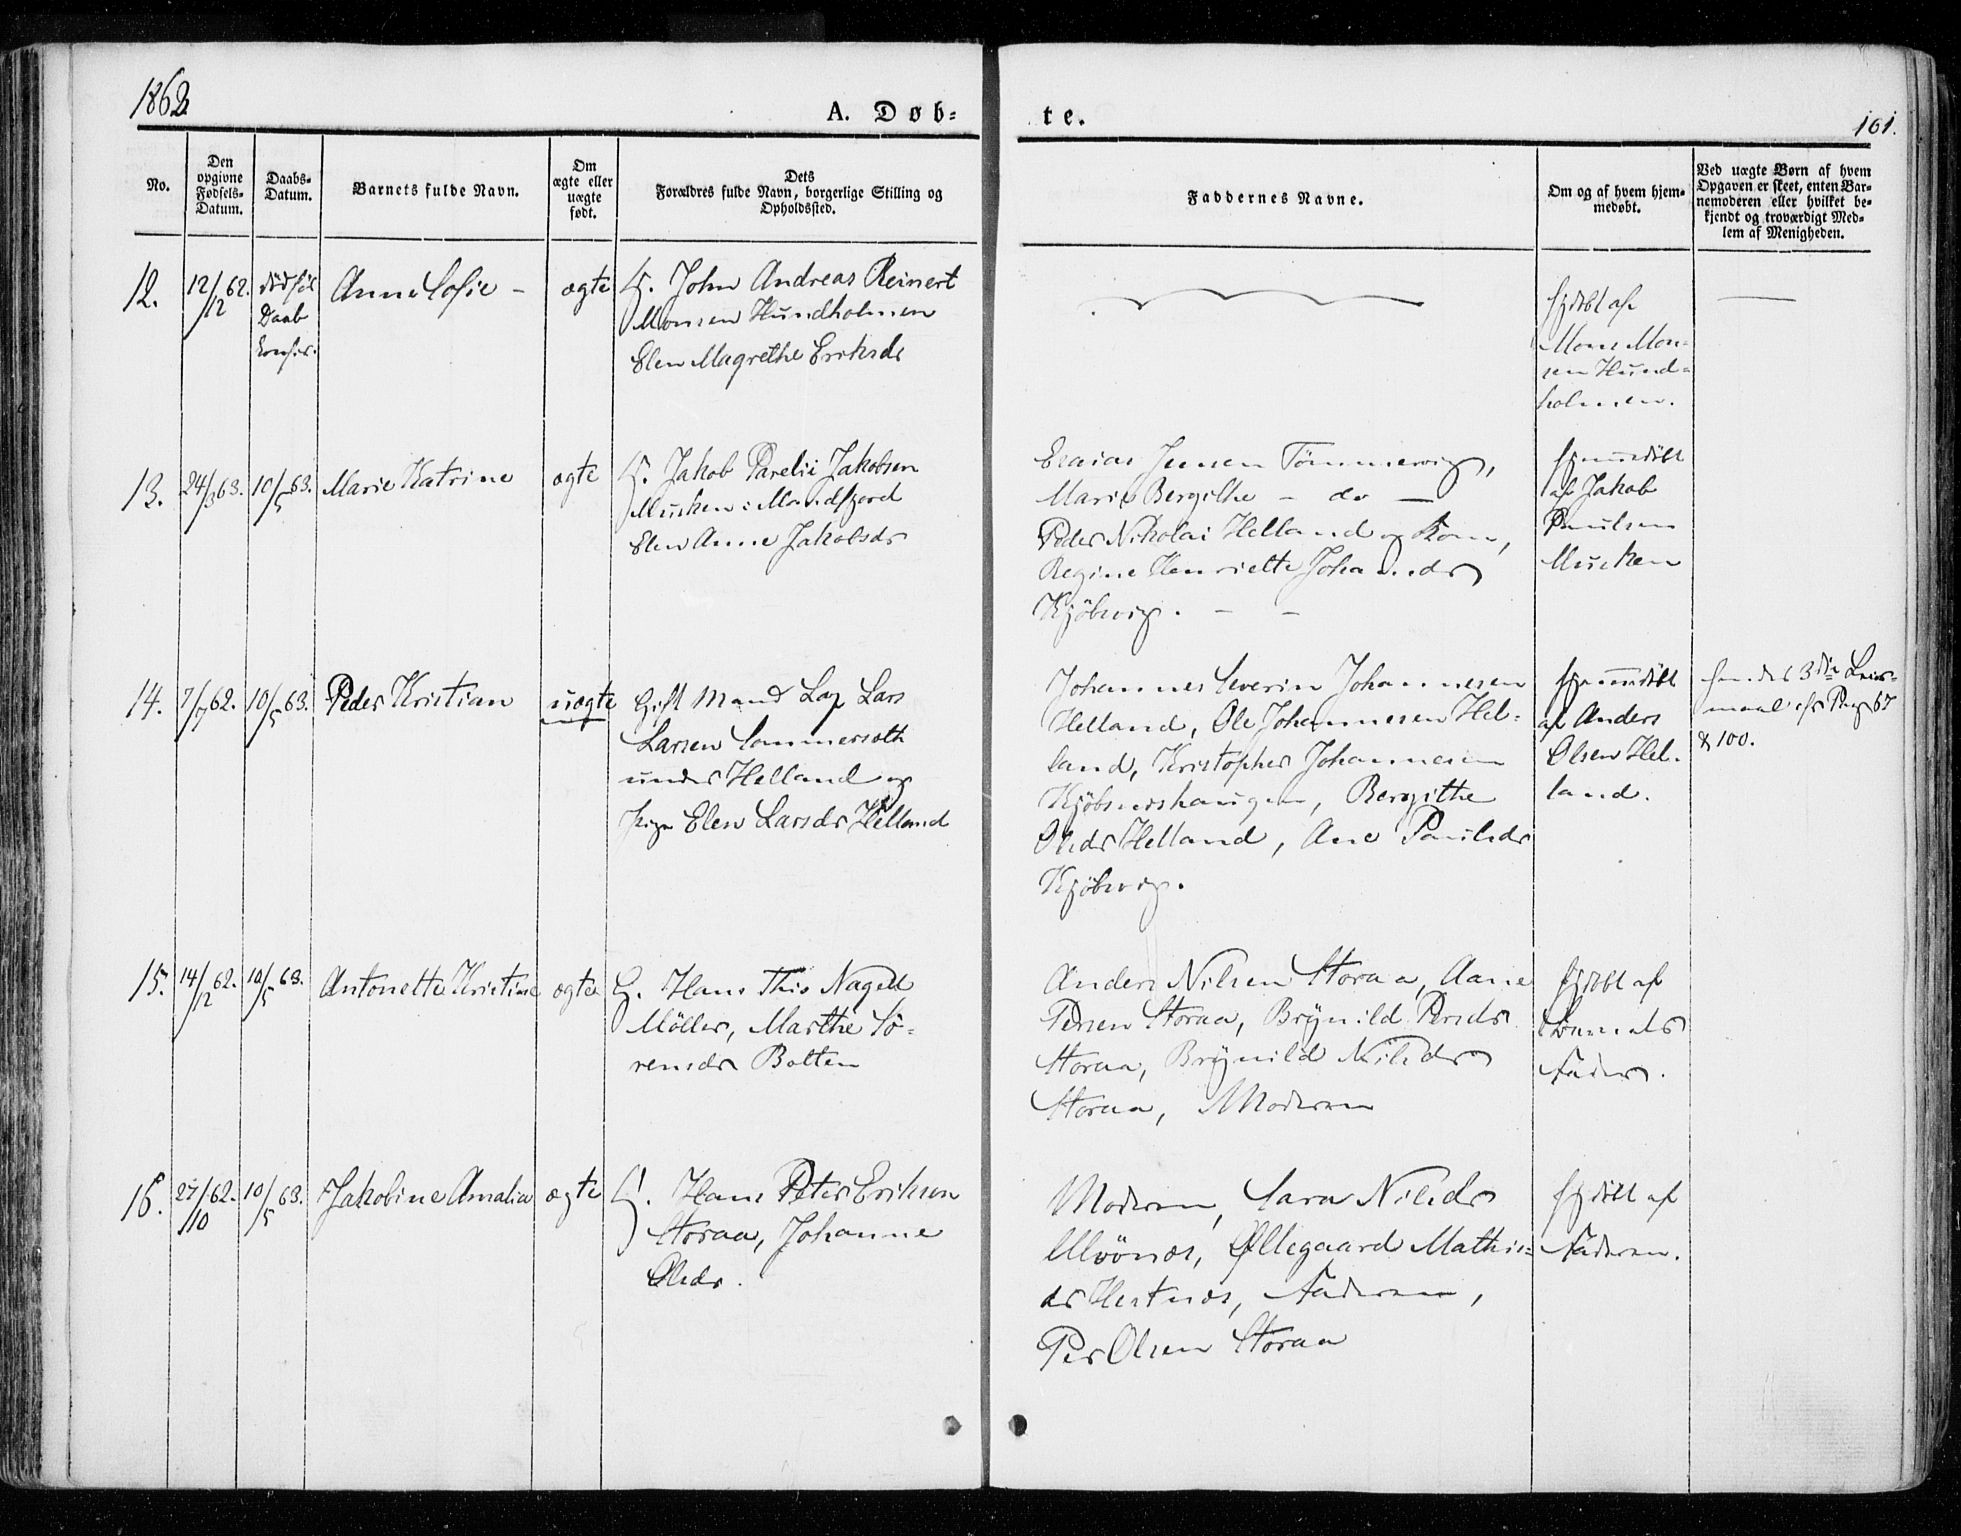 1862
A. Døb-
te.
161.
No.
Den opgivne Fødsels-Datum.
Daabs-Datum.
Barnets fulde Navn.
Om ægte eller uægte født.
Dets
Forældres fulde Navn, borgerlige Stilling og
Opholdssted.
Faddernes Navne.
Om og af hvem hjem-
medøbt.
Ved uægte Børn af hvem
Opgaven er skeet, enten Bar-
nemoderen eller hvilket be-
kjendt og troværdigt Med-
lem af Menigheden.
12.
12/12 62.
død før
Daab
Anne Sofie -
ægte
G. John Andreas Reinert
Monsen Hundholmen
Elen Magrethe Eriksdr
hjdøbt af
Mons Mon-
sen Hund-
holmen.
13.
24/3 63.
10/5 63.
Marie Katrine
ægte
G. Jakob Parelii Jakobsen
Musken i
Elen Anne Jakobsdr
Esaias Jensen Tömmervig,
Marie Bergithe - do -
Peder Nikolai Helland og Kone,
Regine Henriette Johannesdr
Kjöbvig. - -
hjemmedöbt
af Jakob
Paulsen
Musken
14.
7/7 62.
10/5 63.
Peder Kristian
uægte
Gift Mand Lap Lars
Larsen Sommersæth
under Helland og
Pige Elen Larsdr Helland
Johannes Severin Johannesen
Helland, Ole Johannesen Hel-
land, Kristopher Johannesen
Kjöbsneshaugen, Bergithe
Olsdr Helland, Ane Paulsdr
Kjöbvig.
hjemmedöbt
af Anders
Olsen Hel-
land.
hendes 3die Leier-
maal cfr Pag 67
& 100.
15.
14/12 62.
10/5 63.
Antonette Kristine
ægte
G. Hans This Nagell
Möller, Marthe Sö-
rensdr Botten
Anders Nilsen Storaa, Aane
Persen Storaa, Brÿnild Persdr
Storaa, Brÿnild Nilsdr
Storaa, Moderen
hjdøbt af
Barnets
Fader.
16.
27/10 62.
10/5 63.
Jakobine Amalia
ægte
G. Hans Peter Eriksen
Storaa, Johanne
Olsdr.
Moderen, Sara Nilsdr
Ulvönæs, Øllegaard Mathis-
dr Hestnæs, Faderen,
Per Olsen Storaa
hjdöbt af
Faderen.